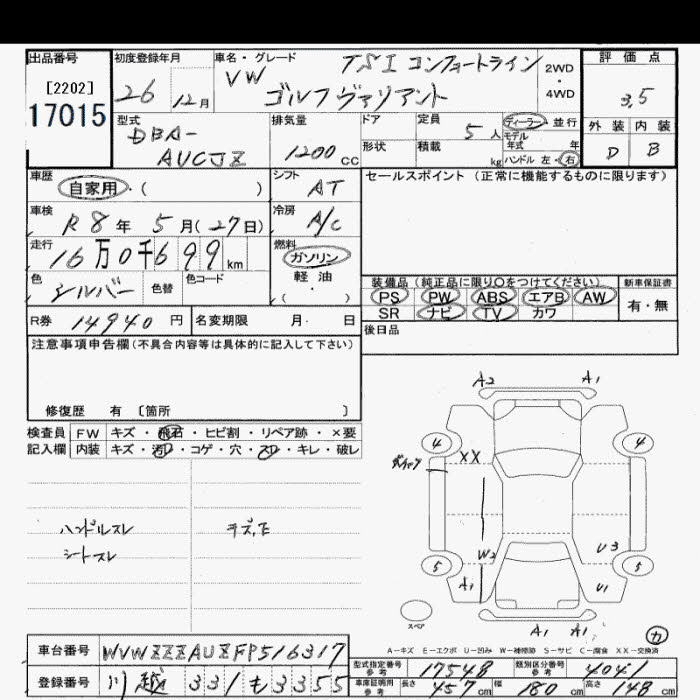 出品番号
[2202]
17015
初度登録年月
26 12月
車名・グレード
VW TSI コンフォートライン
ゴルフヴァリアント
2WD
・
4WD
評価点
3,5
外装 内装
D B
型式
DBA-
AUCJZ
排気量
1200 CC
ドア
定員
5人
形状
積載
kg
ディーラー・並行
モデル
年式 年
ハンドル 左・右
車歴
自家用・( )
シフト
AT
車検
R8年5月(27日)
冷房
A/C
走行
16万0千699km
燃料
ガソリン
軽油
( )
色
シルバー
色替
色コード
R券 14940円
名変期限 月・日
セールスポイント(正常に機能するものに限ります)
装備品(純正品に限り○をつけてください)
PS PW ABS エアB AW
SR ナビ TV カワ
新車保証書
有・無
後日品
注意事項申告欄(不具合内容等は具体的に記入して下さい)
修復歴 有 [箇所 ]
検査員
記入欄
FW キズ・飛石・ヒビ割・リペア跡・×要
内装 キズ・汚れ・コゲ・穴・スレ・キレ・破レ
ハンドルスレ
シートスレ
A2 A1
4 4
XX
W2 U3
5 5
A1 U1
スペア
A1 A1
カ
A-キズ E-エクボ U-凹み W-補修跡 S-サビ C-腐食 XX-交換済
車台番号 WVWZZZAUZFP516317
登録番号 川越 331も3355
型式指定番号
参考
17548
類別区分番号
参考
4041
車庫証明用
参考
長さ 457cm 幅 180cm 高さ 148cm